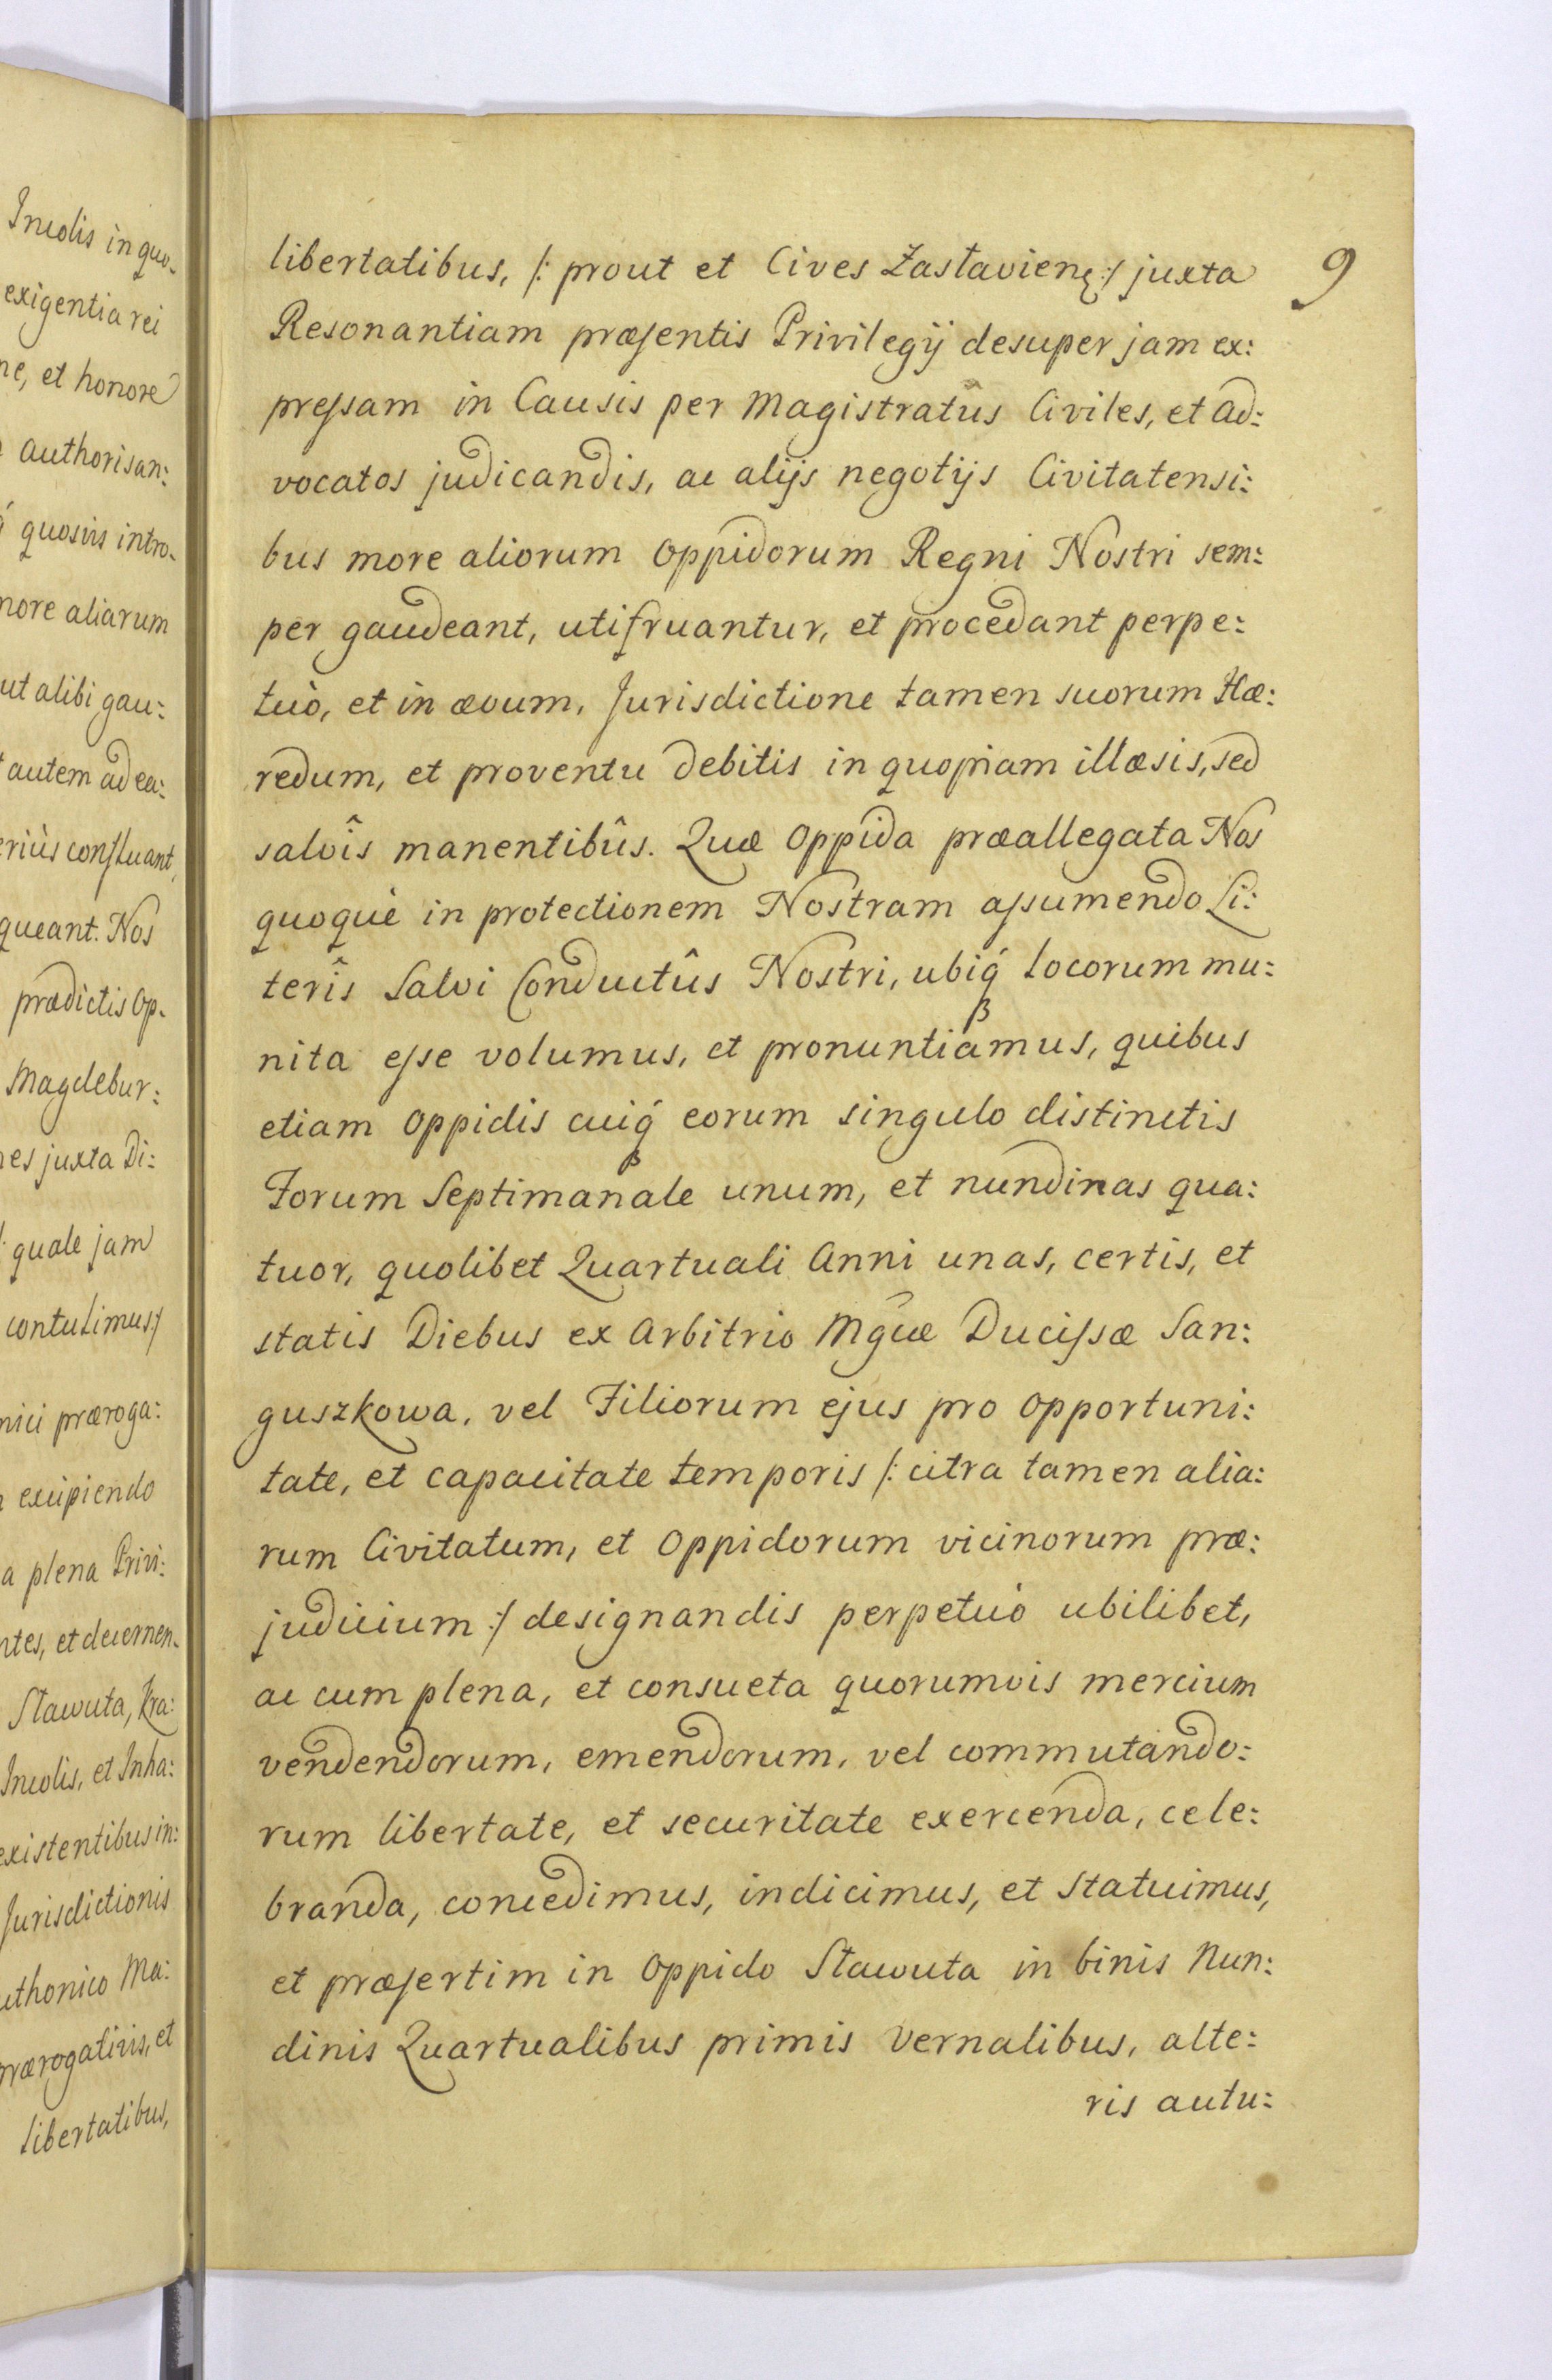 Incolis in quo-
exigentia rei
ne, et honore
authorisan:
quosvis intro-
more aliarum
ut alibi gau:
autem ad ea:
eriùs confluant,
queant. Nos
prædictis Op-
Magdebur:
es juxta Di:
quale jam
contulimus :/
nici præroga:
excipiendo
a plena Privi:
ntes, et decernen-
Sławuta, Kra:
Incolis, et Inha:
existentibus in:
Jurisdictionis
uthonico Ma:
prærogativis, et
libertatibus,
9
libertatibus, /: prout et Cives Zasłavienę :/ juxta
Resonantiam præsentis Privilegij desuper jam ex:
pressam in Causis per Magistratûs Civiles, et Ad:
vocatos judicandis, ac alijs negotijs Civitatensi:
bus more aliorum Oppidorum Regni Nostri sem:
per gaudeant, utifruantur, et procedant perpe:
tuò, et in ævum, Jurisdictione tamen suorum Hæ:
redum, et proventu debitis in quopiam illæsis, sed
salvîs manentibûs. Quæ Oppida præallegata Nos
quoquè in protectionem Nostram assumendo Li:
terîs Salvi Conductûs Nostri, ubiq́ locorum mu:
nita esse volumus, et pronuntiamus, quibus
etiam Oppidis cuiq́ eorum singulo distinctis
Forum Septimanale unum, et nundinas qua:
tuor, quolibet Quartuali Anni unas, certis, et
statis Diebus ex Arbitrio Mgũæ Ducissæ San:
guszkowa, vel Filiorum ejus pro opportuni:
tate, et capacitate temporis /: citra tamen alia:
rum Civitatum, et Oppidorum vicinorum præ:
judicium :/ designandis perpetuò ubilibet,
ac cum plena, et consueta quorumvis mercium
vendendorum, emendorum, vel commutando:
rum libertate, et securitate exercenda, cele:
branda, concedimus, indicimus, et statuimus,
et præsertim in Oppido Sławuta in binis Nun:
dinis Quartualibus primis Vernalibus, alte:
ris autu: